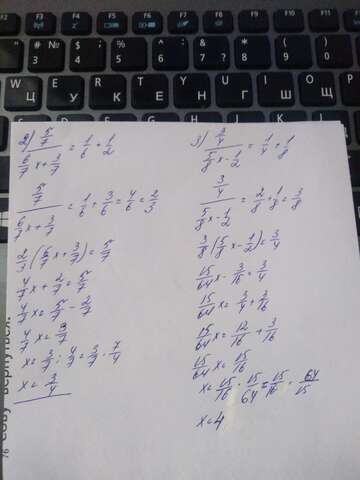 F2 F3 F4 F5 F6 F7 F8 F9 F10 F11
# № 3 $ 4 % 5 ^ 6 & 7 * 8 ( 9 ) 0
W Ц E У R К
2) (5/7)/(6/7 x + 3/7) = 1/6 + 1/2
(5/7)/(6/7 x + 3/7) = 1/6 + 3/6 = 4/6 = 2/3
2/3 (6/7 x + 3/7) = 5/7
4/7 x + 2/7 = 5/7
4/7 x = 5/7 - 2/7
4/7 x = 3/7
x = 3/7 : 4/7 = 3/7 · 7/4
x = 3/4
3) (3/4)/(5/8 x - 1/2) = 1/4 + 1/8
(3/4)/(5/8 x - 1/2) = 2/8 + 1/8 = 3/8
3/8 (5/8 x - 1/2) = 3/4
15/64 x - 3/16 = 3/4
15/64 x = 3/4 + 3/16
15/64 x = 12/16 + 3/16
15/64 x = 15/16
x = 15/16 : 15/64 = 15/16 · 64/15
x = 4